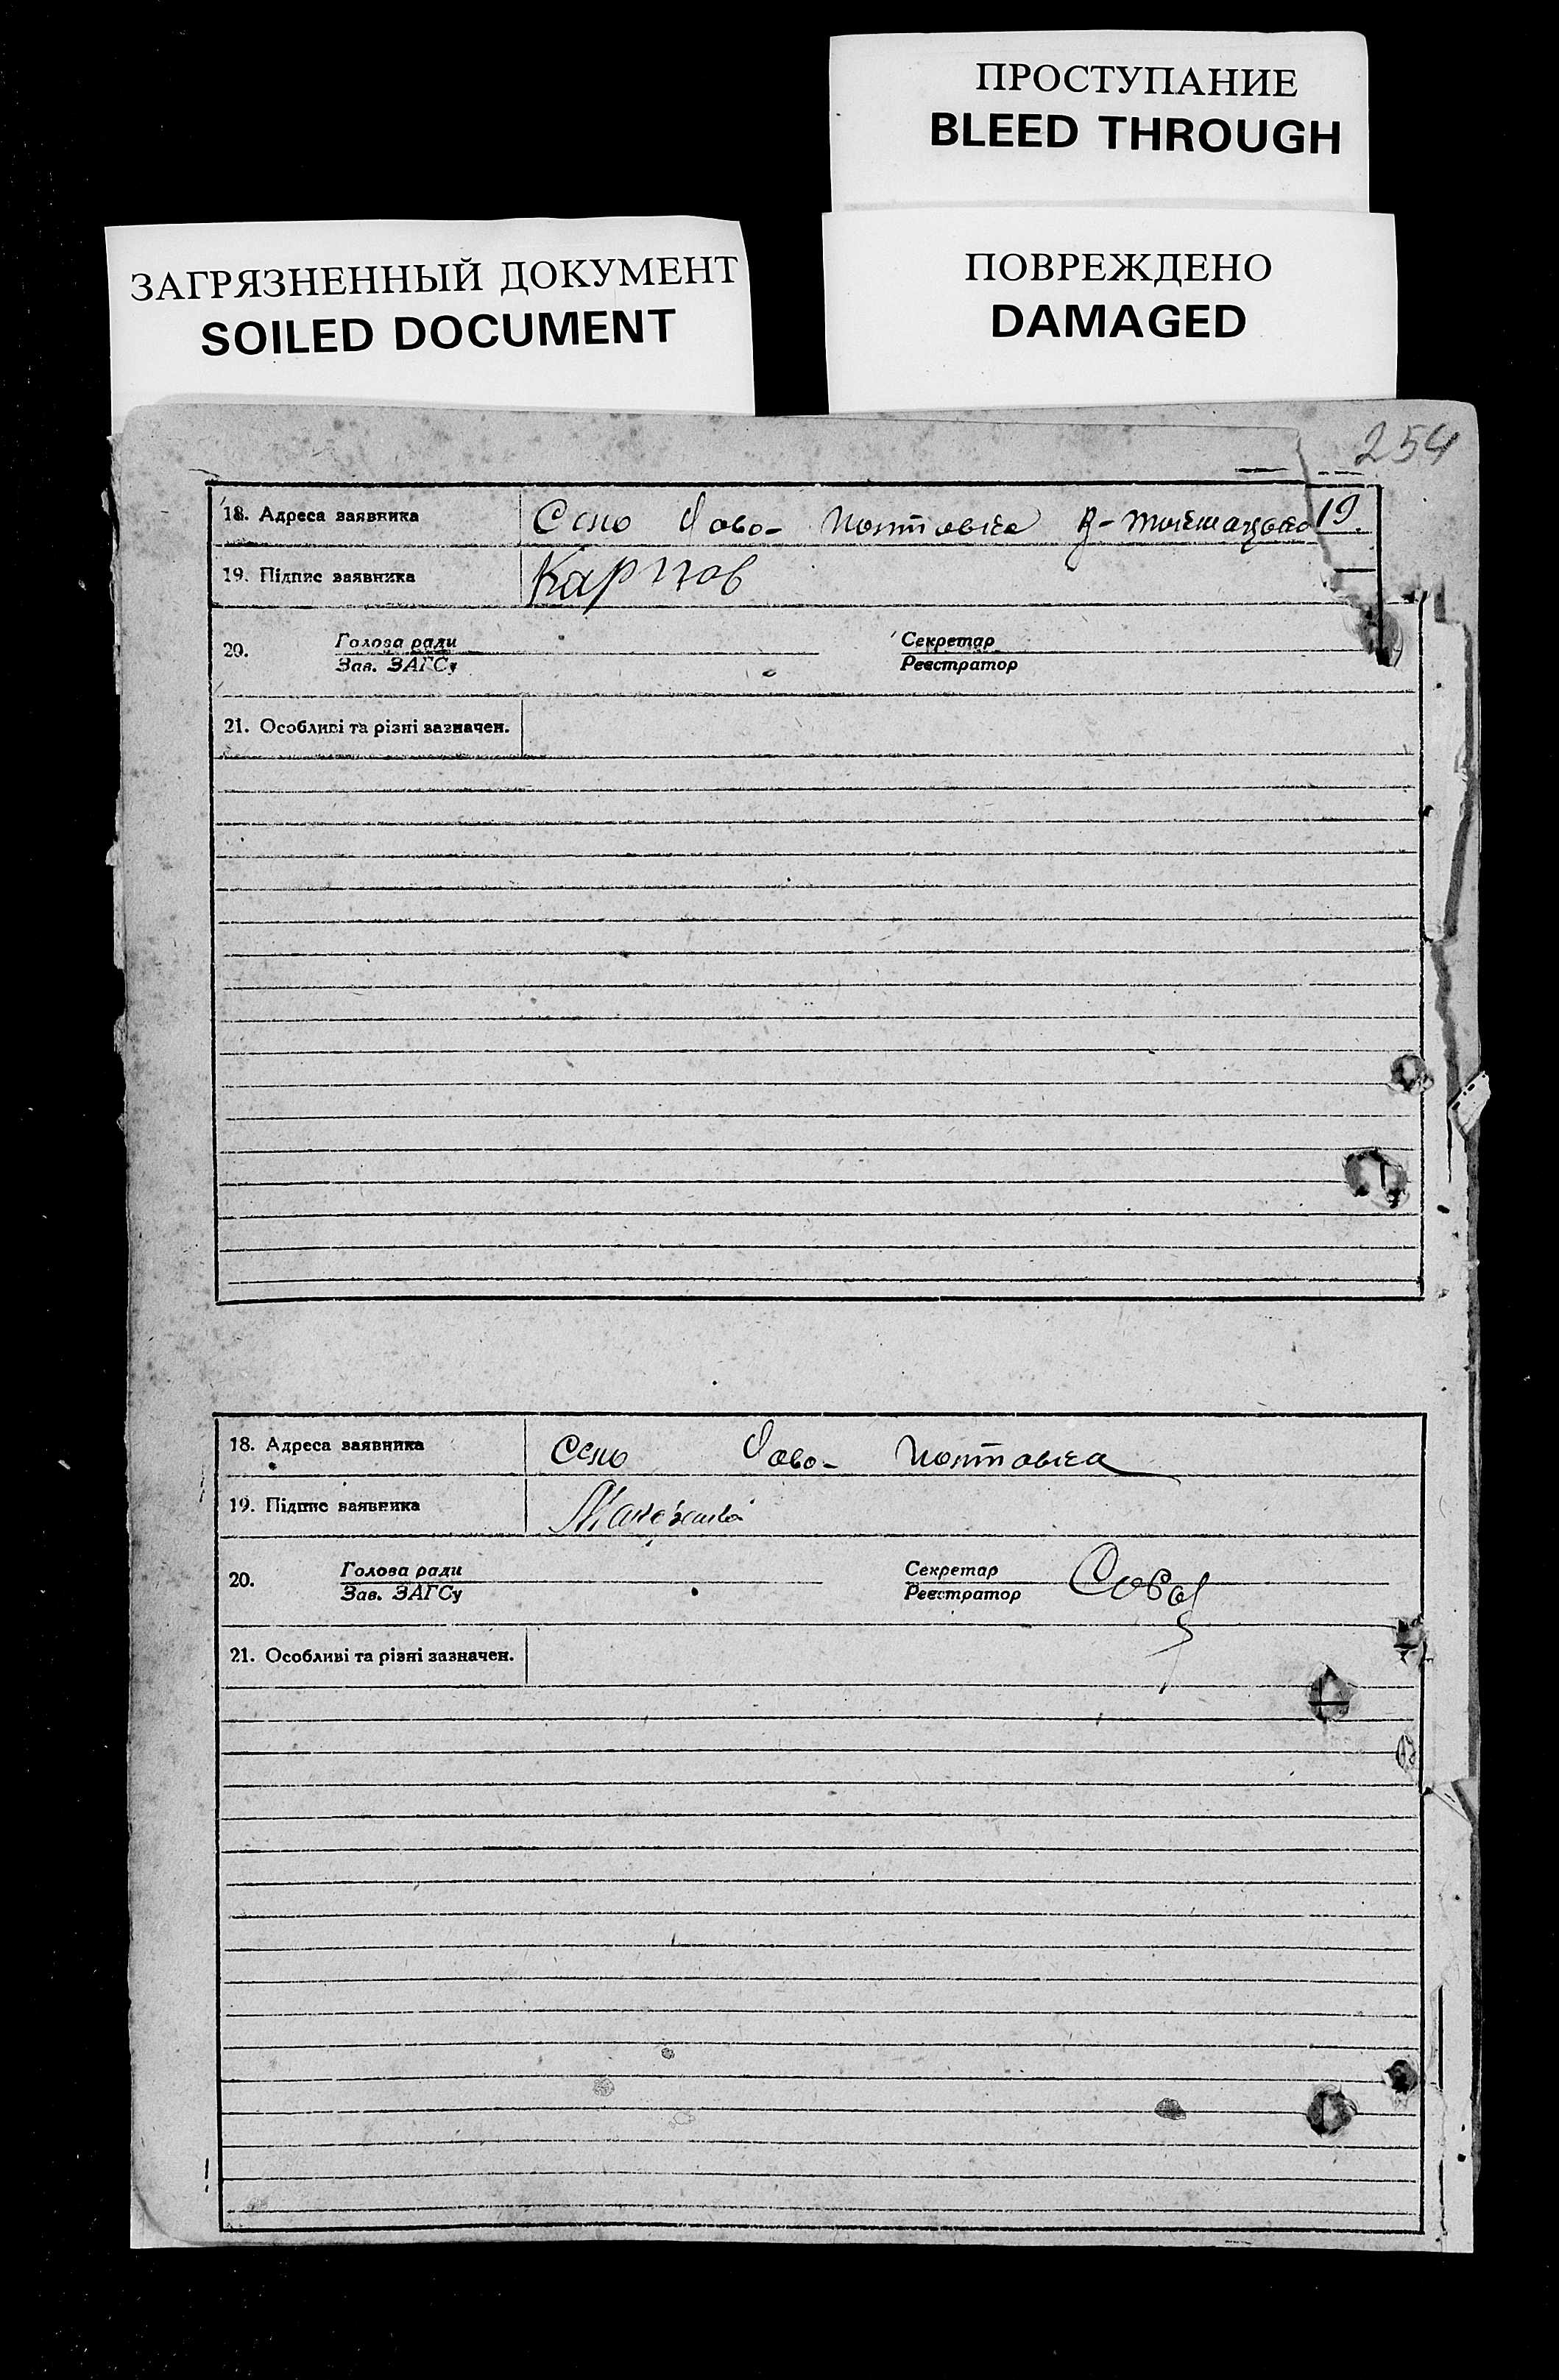 ПРОСТУПАНИЕ
BLEED THROUGH
ЗАГРЯЗНЕННЫЙ ДОКУМЕНТ
SOILED DOCUMENT
ПОВРЕЖДЕНО
DAMAGED
254
18. Адреса заявника Село Ново- Полтавка
19.
19. Підпис заявника Карпов
20. Голова ради Секретар
Зав. ЗАГСу Реєстратор
21. Особливі та різні зазначен.
18. Адреса заявника Село Ново- Полтавка
19. Підпис заявника
20. Голова ради Секретар
Зав. ЗАГСу Реєстратор
21. Особливі та різні зазначен.